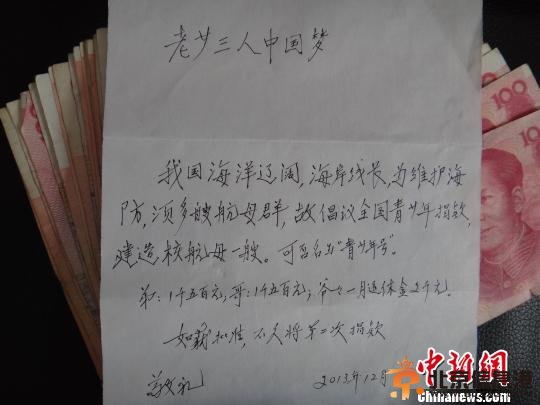 老少三人中国梦
我国海洋辽阔，海岸线长，为维护海
防，须多艘航母群，故倡议全国青少年捐款，
建造核航母一艘。可否名为“青少年号”。
弟：1千五百元，哥：1千五百元，爷爷一月退休金2千元。
如蒙批准，不久将第二次捐款
敬礼
2013年12月
中新网
CHINANEWS.COM
100
100